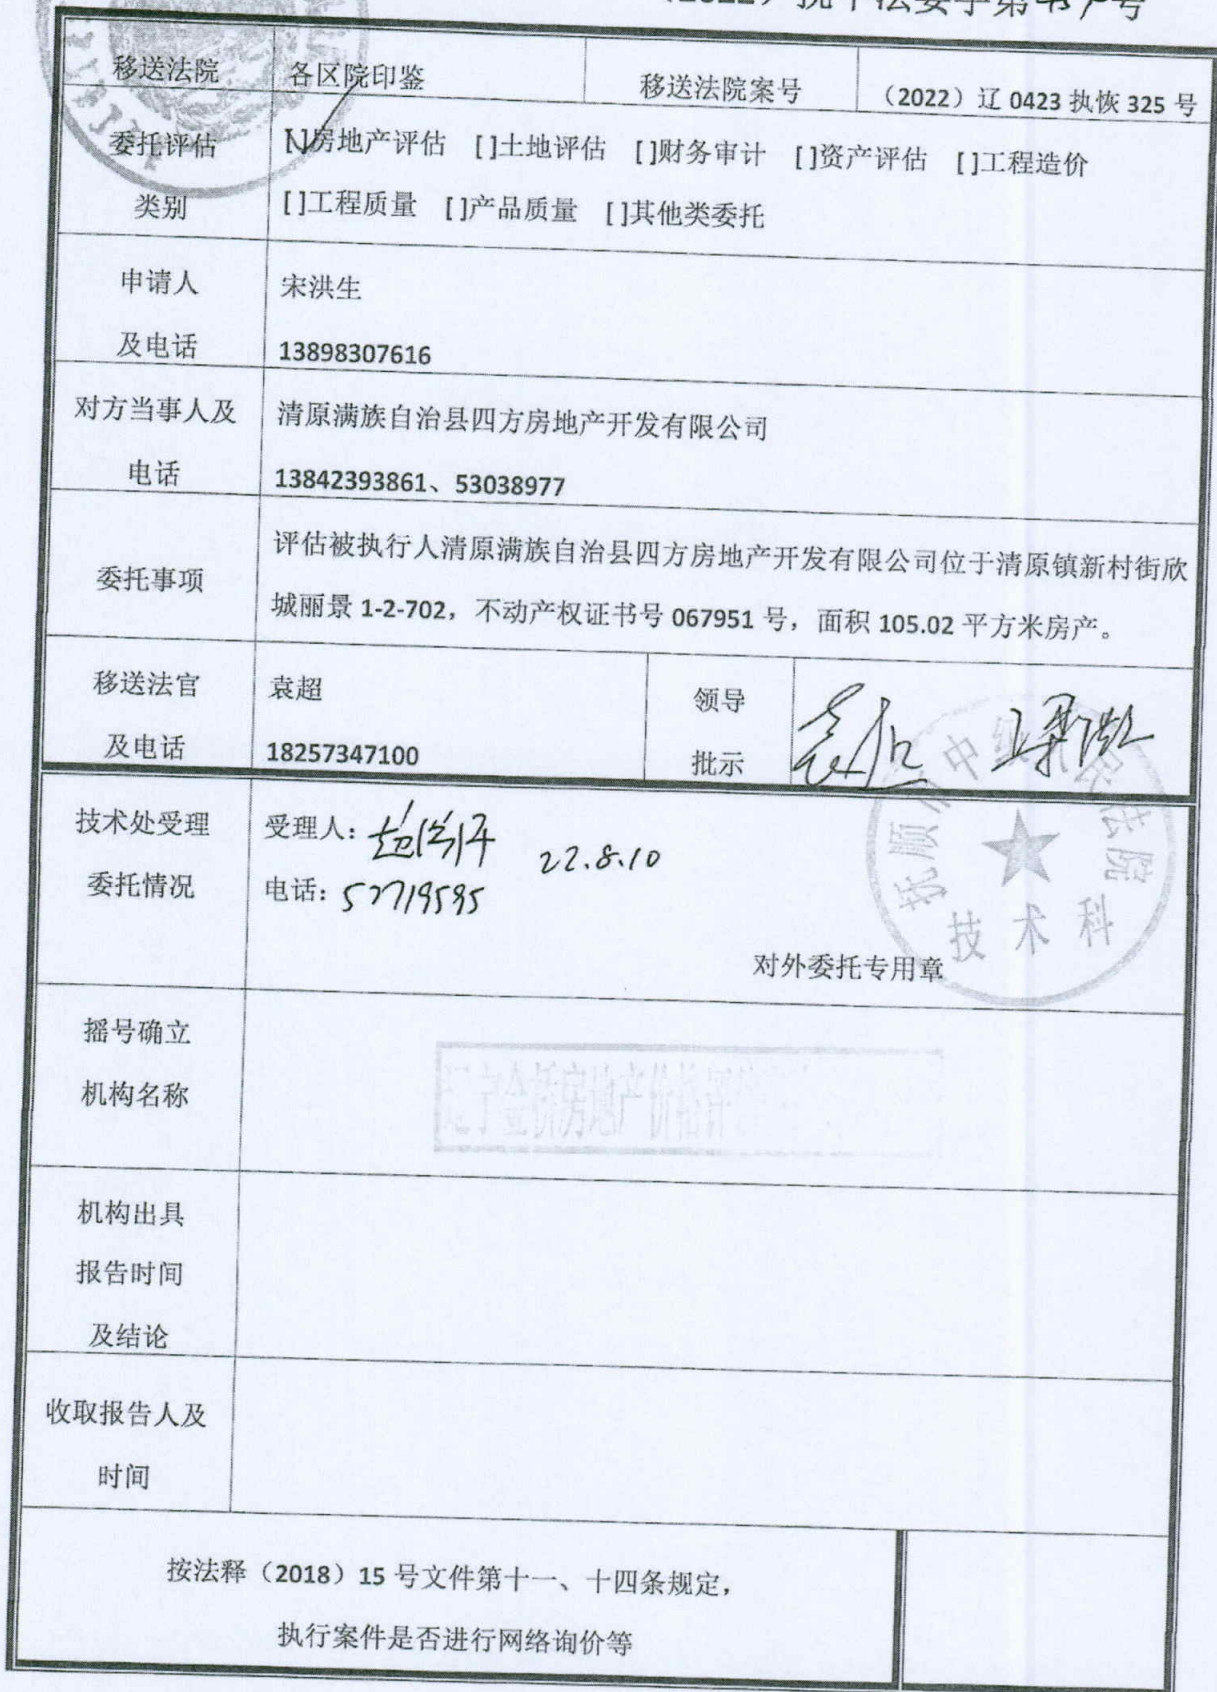 （2022）抚中法委字第 号
移送法院 各区院印鉴 移送法院案号 （2022）辽 0423 执恢 325 号
委托评估 []房地产评估 []土地评估 []财务审计 []资产评估 []工程造价
类别 []工程质量 []产品质量 []其他类委托
申请人 宋洪生
及电话 13898307616
对方当事人及 清原满族自治县四方房地产开发有限公司
电话 13842393861、53038977
评估被执行人清原满族自治县四方房地产开发有限公司位于清原镇新村街欣
委托事项
城丽景 1-2-702，不动产权证书号 067951 号，面积 105.02 平方米房产。
移送法官 袁超 领导
及电话 18257347100 批示
抚顺市中级人民法院
技术科
技术处受理 受理人： 22.8.10
委托情况 电话：52719595
对外委托专用章
摇号确立
机构名称
辽宁金桥房地产价格评
机构出具
报告时间
及结论
收取报告人及
时间
按法释（2018）15 号文件第十一、十四条规定，
执行案件是否进行网络询价等